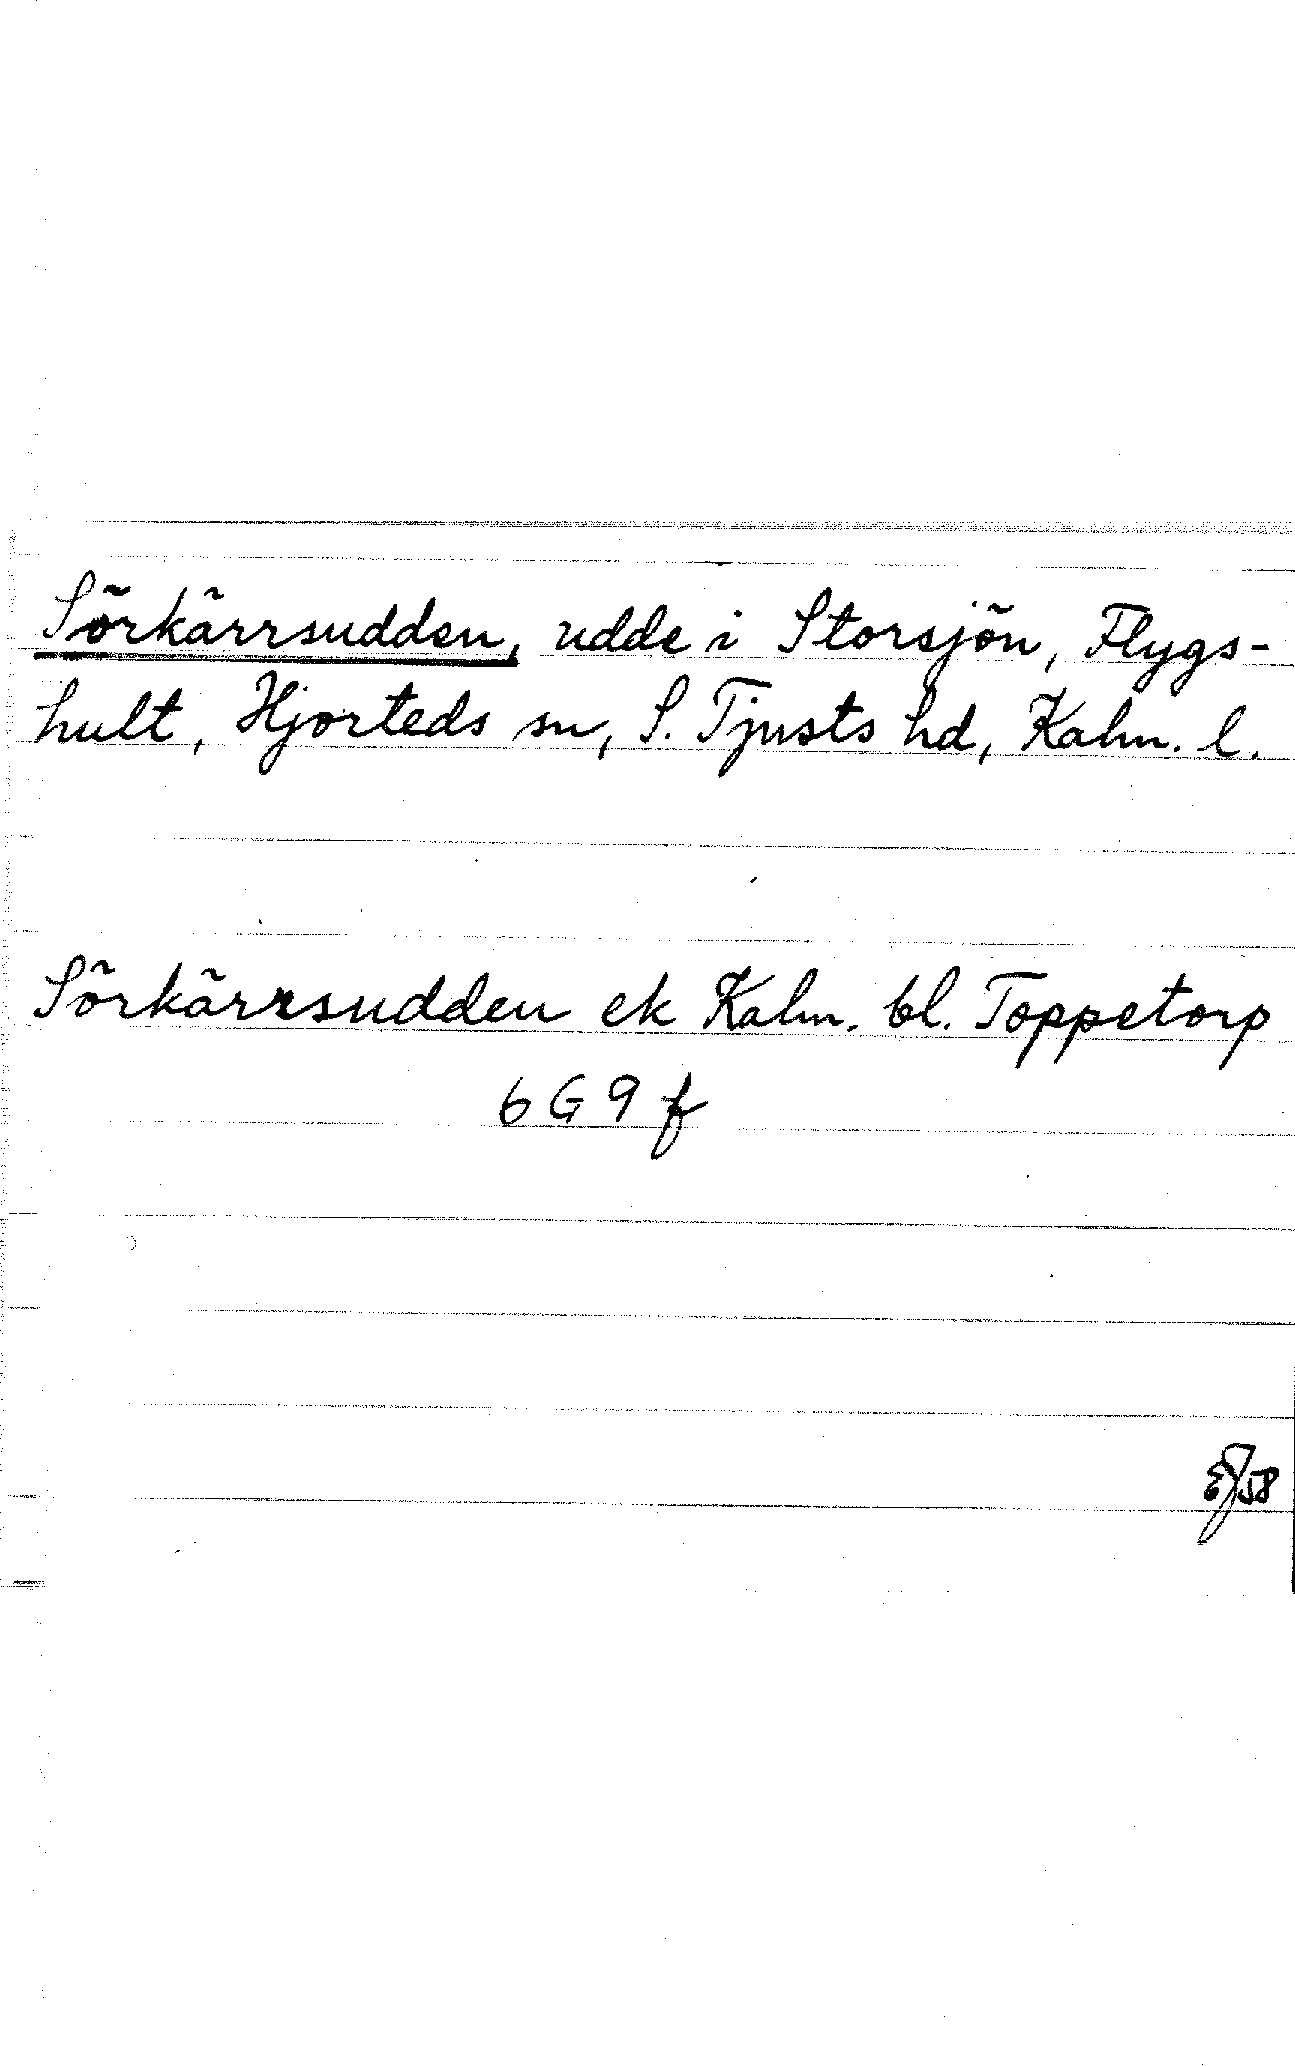 Sörkärrsudden, udde i Storsjön, Flygs-
hult, Hjorteds sn, S. Tjusts hd, Kalm. l.
Sörkärrsudden ek Kalm. bl. Toppetorp
6 G 9 f